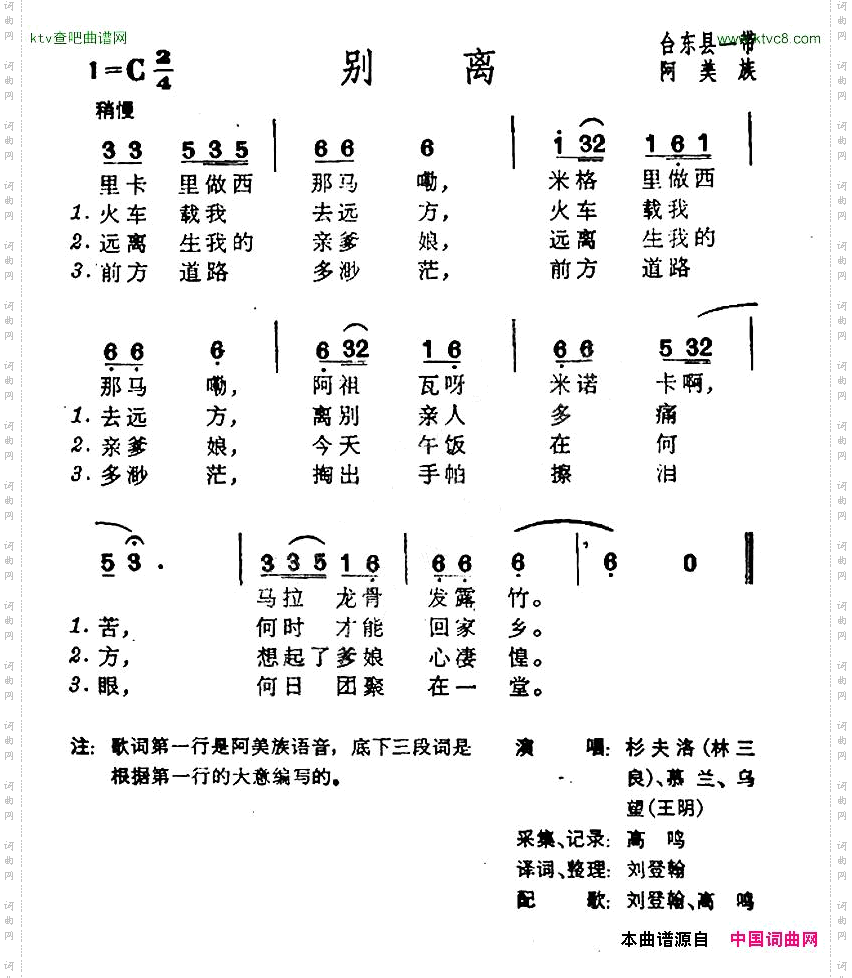 ktv查吧曲谱网
www.ktvc8.com
台东县一带
阿美族
1=C 2/4
别离
稍慢
3 3 5 3 5 | 6 6 6 | 1 32 1 6 1 |
里卡 里做西 那马 嘞, 米格 里做西
1.火车 载我 去远 方, 火车 载我
2.远离 生我的 亲爹 娘, 远离 生我的
3.前方 道路 多渺 茫, 前方 道路
6 6 6 | 6 32 1 6 | 6 6 5 32 |
那马 嘞, 阿祖 瓦呀 米诺 卡啊,
1.去远 方, 离别 亲人 多 痛
2.亲爹 娘, 今天 午饭 在 何
3.多渺 茫, 掏出 手帕 擦 泪
5 3. | 3 3 5 1 6 | 6 6 6 | 6 0 ‖
马拉 龙骨 发露 竹。
1.苦, 何时 才能 回家 乡。
2.方, 想起了爹娘 心凄 惶。
3.眼, 何日 团聚 在一 堂。
注: 歌词第一行是阿美族语音, 底下三段词是
根据第一行的大意编写的。
演 唱: 杉夫洛(林三
良)、慕兰、乌
望(王明)
采集、记录: 高鸣
译词、整理: 刘登翰
配 歌: 刘登翰、高鸣
本曲谱源自 中国词曲网